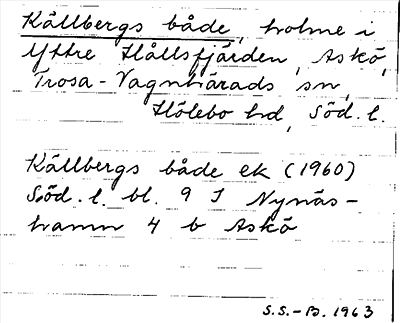 Källbergs både, holme i
Yttre Hållsfjärden, Askö,
Trosa-Vagnhärads sn,
Hölebo hd, Söd. l.
Källbergs både ek (1960)
Söd. l. bl. 9 I Nynäs-
hamn 4 b Askö
S.S.-B. 1963